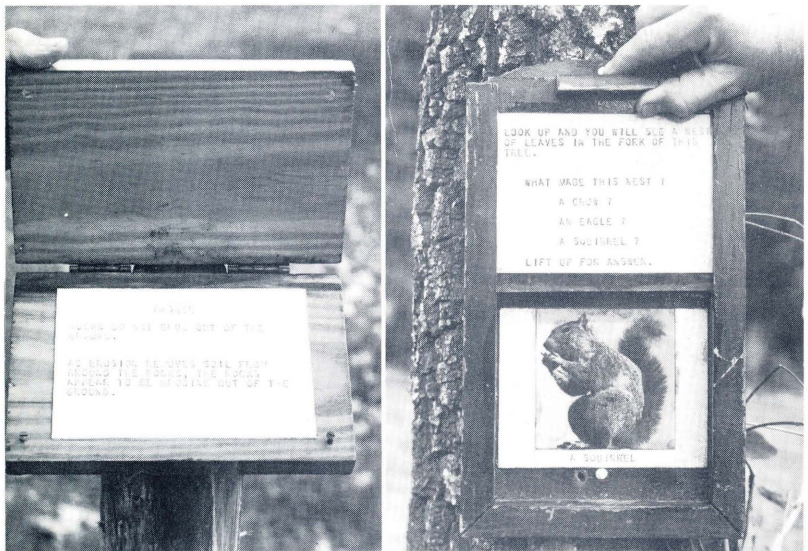 ANSWER
ROCKS DO NOT GROW OUT OF THE
GROUND.
AS EROSION REMOVES SOIL FROM
AROUND THE ROCKS, THE ROCKS
APPEAR TO BE GROWING OUT OF THE
GROUND.
LOOK UP AND YOU WILL SEE A NEST
OF LEAVES IN THE FORK OF THIS
TREE.
WHAT MADE THIS NEST ?
A CROW ?
AN EAGLE ?
A SQUIRREL ?
LIFT UP FOR ANSWER.
A SQUIRREL